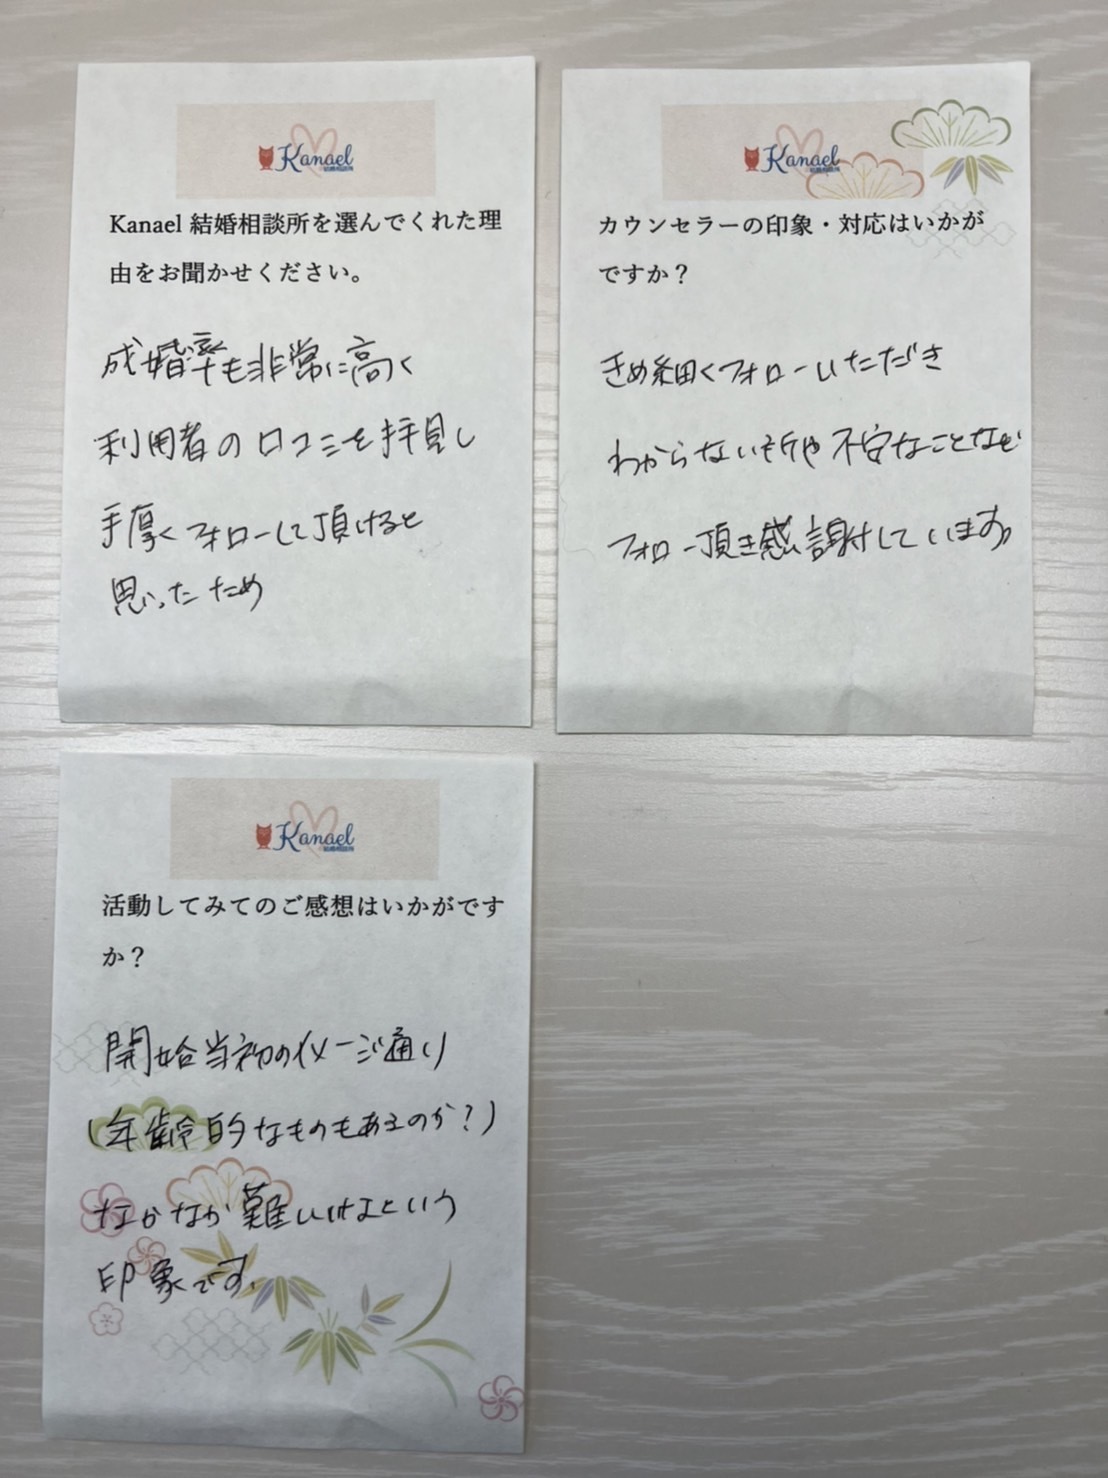 Kanael
結婚相談所
Kanael 結婚相談所を選んでくれた理
由をお聞かせください。
成婚率も非常に高く
利用者の口コミを拝見し
手厚くフォローして頂けると
思ったため
Kanael
結婚相談所
カウンセラーの印象・対応はいかが
ですか?
きめ細くフォローいただき
わからない所や不安なことなど
フォロー頂き感謝しています。
Kanael
結婚相談所
活動してみてのご感想はいかがです
か?
開始当初のイメージ通り
(年齢的なものもあるのか?)
なかなか難しいなという
印象です.